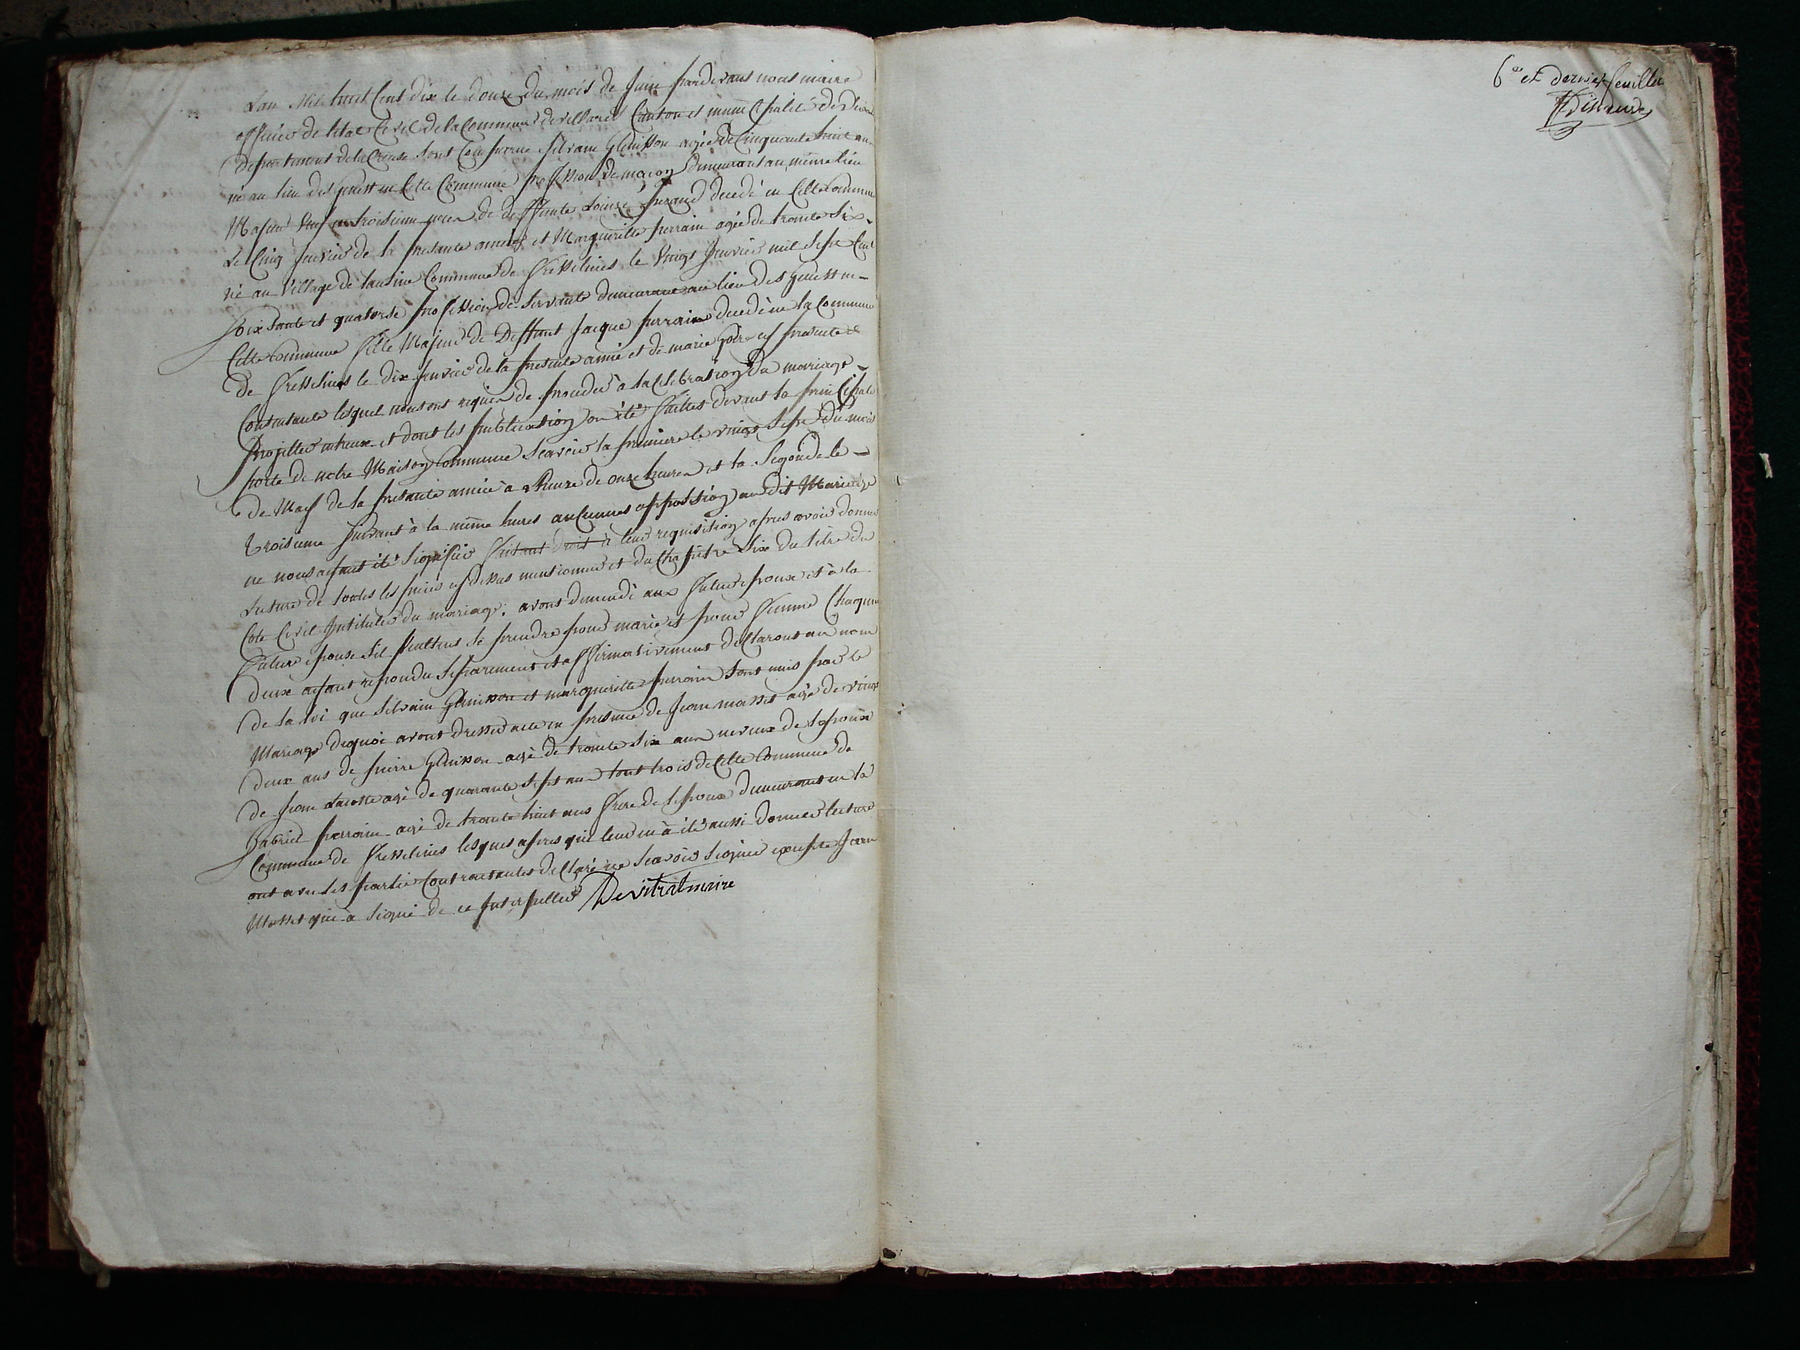 Lan Mil huit Cent dix le douze du mois de Juin pardevant nous maire
officier de létat Civil de la Commune de villard Canton et municipalité de dun
Département de la Creuse sont Comparue silvain Glenisson agée de Cinquante huit ans
né au lieu des Cette Commune profession de maçon demeurant au même lieu
Majeur veuf en troisieme de deffunte Louise durand decedé en Cette Commune
Le Cinq Janvier de la presante année et Marguerite perrain agée de trente six
né au village de Commune de fresselines le vingt Janvier mil sept Cent
soixante et quatorse profession de servante demeurant au lieu des
Cette Commune fille Majeure de Deffunt Jacque perrain decedé en la Commune
de fresselines le dix Janvier de la presente année et de marie cy presente et
Consentante lesquel nous ont requis de proceder à la Celebration du mariage
projetter entreux et dont les publication on été faittes devant la principale
porte de notre Maison Commune scavoir la premiere le vingt sept du mois
de May de la presante année à lheure de onze heures et la segonde le
troisieme suivant à la même heures aucunnes opposition au dit Mariage
ne nous ayant été signifiée faisant droit à leur requisition apres avoir donné
Lecture de toutes les pièces cy dessus mentionnée et du Chapitre six du titre du
Code Civil Intitulés du mariage, avons demandé aux futur epoux et à la
future epouse sil veullent se prendre pour marie et pour femme Chaqun
deux ayant repondu séparement et affirmativement déclarons au nom
de la loi que silvain Glenisson et marguerite perrain sont unis par le
Mariage dequoi avons dressé acte en presence de Jean masset agé de vingt
deux ans de pierre Glenisson agé de trante six ans neveux de lepoux
de Jean Lacotte agé de quarante sept ans tout trois de Cette Commune de
Gabriel perrain agé de trante huit ans frere de lepouse demeurant en la
Commune de fresselines lesques apres quil leur en à été aussi donnée lecture
ont avec les partie Contractantes declaré ne scavoir signée excepté Jean
Masset qui a signé de ce interpellés Devitral maire
6e et dernier feuillet